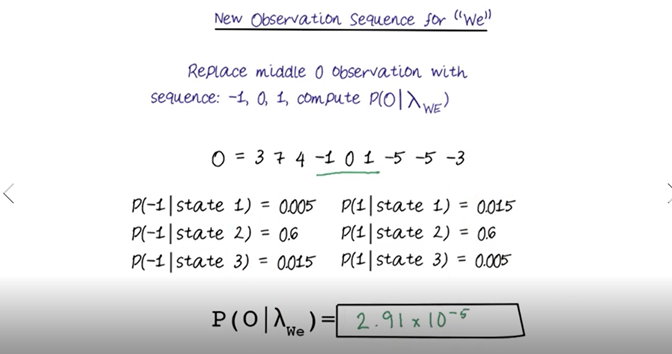 New Observation Sequence for "We"
Replace middle 0 observation with
sequence: -1, 0, 1, compute P(O|λ WE)
O = 3 7 4 -1 0 1 -5 -5 -3
P(-1|state 1) = 0.005 P(1|state 1) = 0.015
P(-1|state 2) = 0.6 P(1|state 2) = 0.6
P(-1|state 3) = 0.015 P(1|state 3) = 0.005
P(O|λWe)= 2.91 x 10⁻⁵